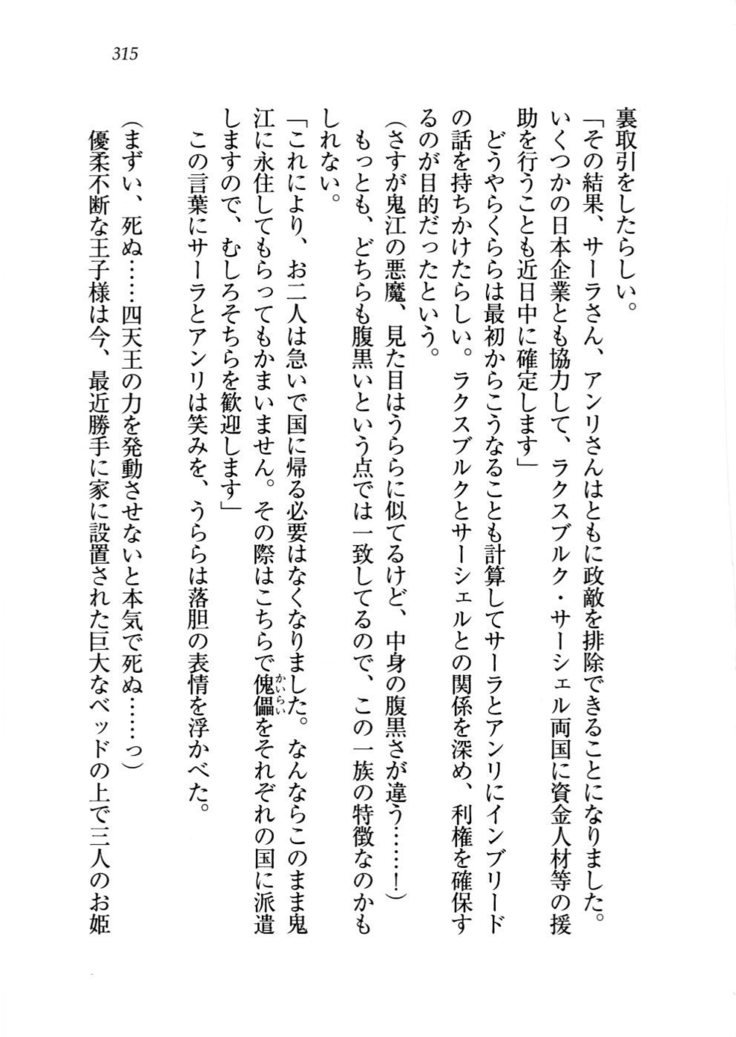 315
裏取引をしたらしい。
「その結果、サーラさん、アンリさんはともに政敵を排除できることになりました。
いくつかの日本企業とも協力して、ラクスブルク・サーシェル両国に資金人材等の援
助を行うことも近日中に確定します」
どうやらくららは最初からこうなることも計算してサーラとアンリにインブリード
の話を持ちかけたらしい。ラクスブルクとサーシェルとの関係を深め、利権を確保す
るのが目的だったという。
(さすが鬼江の悪魔、見た目はうららに似てるけど、中身の腹黒さが違う……！)
もっとも、どちらも腹黒いという点では一致してるので、この一族の特徴なのかも
しれない。
「これにより、お二人は急いで国に帰る必要はなくなりました。なんならこのまま鬼
江に永住してもらってもかまいません。その際はこちらで傀儡をそれぞれの国に派遣
かいらい
しますので、むしろそちらを歓迎します」
この言葉にサーラとアンリは笑みを、うららは落胆の表情を浮かべた。
(まずい、死ぬ……四天王の力を発動させないと本気で死ぬ……っ)
優柔不断な王子様は今、最近勝手に家に設置された巨大なベッドの上で三人のお姫